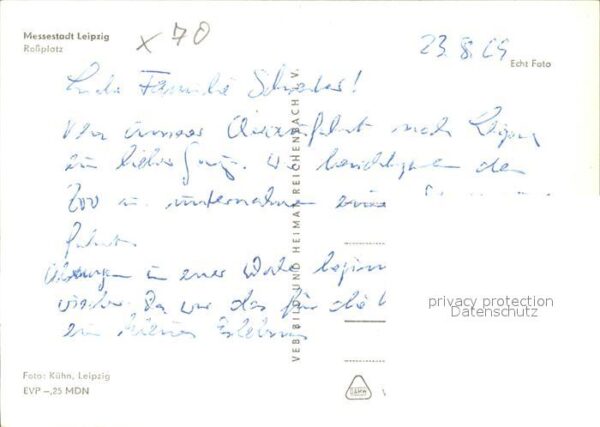 Messestadt Leipzig
Roßplatz
x 70
23.8.69
Echt Foto
Familie
Von unserer nach
ein lieber Gruß. Wir besichtigten den
Zoo u. unternahmen eine
fahrt.
in einer Woche beginnt
wieder. Da war das für die
ein kleines Erlebnis
VEB BILD UND HEIMAT REICHENBACH I. V.
privacy protection
Datenschutz
Foto: Kühn, Leipzig
EVP –,25 MDN